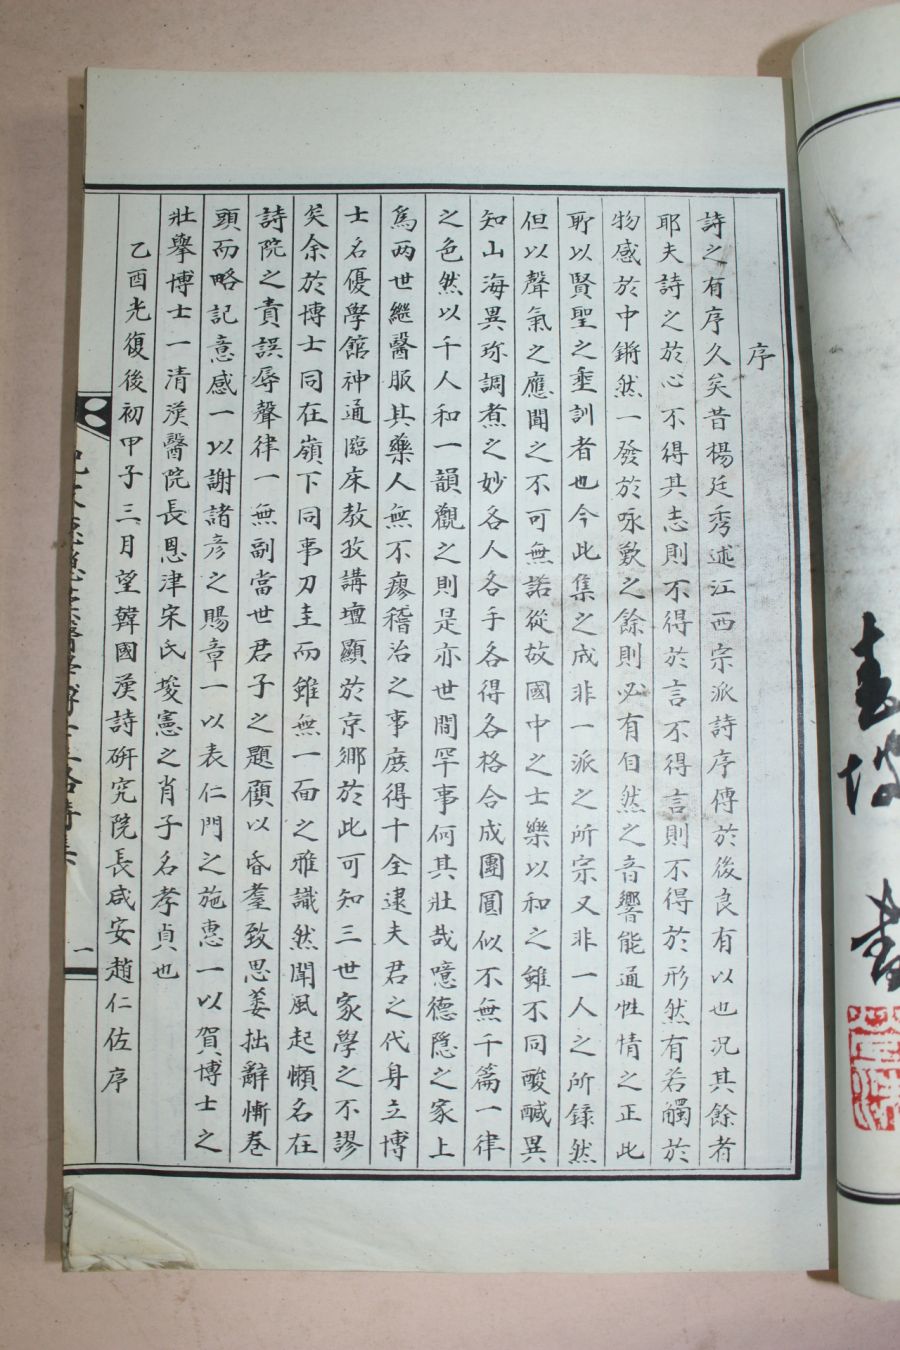 序
詩之有序久矣昔楊廷秀述江西宗派詩序傳於後良有以也況其餘者
耶夫詩之於心不得其志則不得於言不得言則不得於形然有若觸於
物感於中鏘然一發於咏歎之餘則必有自然之音響能通性情之正此
所以賢聖之垂訓者也今此集之成非一派之所宗又非一人之所錄然
但以聲氣之應聞之不可無諾從故國中之士樂以和之雖不同酸醎異
知山海異珎調煮之妙各人各手各得各格合成團圓似不無千篇一律
之色然以千人和一韻觀之則是亦世間罕事何其壯哉噫德隱之家上
爲两世繼醫服其藥人無不瘳稽治之事庶得十全逮夫君之代身立博
士名優學館神通臨床教孜講壇顯於京鄉於此可知三世家學之不謬
矣余於博士同在嶺下同事刀圭而雖無一面之雅識然聞風起懶名在
詩院之責誤辱聲律一無副當世君子之題願以昏耋致思萎拙辭慚卷
頭而略記意感一以謝諸彦之賜章一以表仁門之施惠一以賀博士之
壯擧博士一清漢醫院長恩津宋氏埈憲之肖子名孝貞也
乙酉光復後初甲子三月望韓國漢詩硏究院長咸安趙仁佐序
一